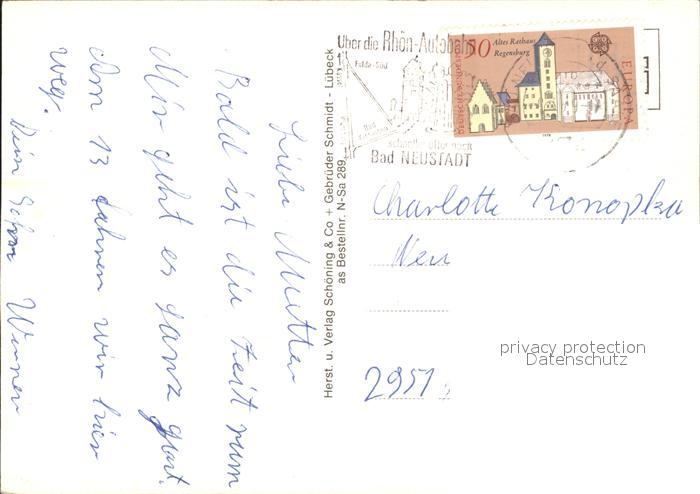 Liebe Mutter
Bald ist die Zeit rum
Mir geht es ganz gut.
Am 13 fahren wir hier
weg.
Dein Sohn Werner
Herst. u. Verlag Schöning & Co + Gebrüder Schmidt - Lübeck
as Bestellnr. N-Sa 289
Über die Rhön-Autobahn
Fulda-Süd
Bad
schnell
nach
Bad NEUSTADT
50
Altes Rathaus
Regensburg
DEUTSCHE BUNDESPOST
EUROPA
1978
Charlotte Konopka
Neu
2951
privacy protection
Datenschutz